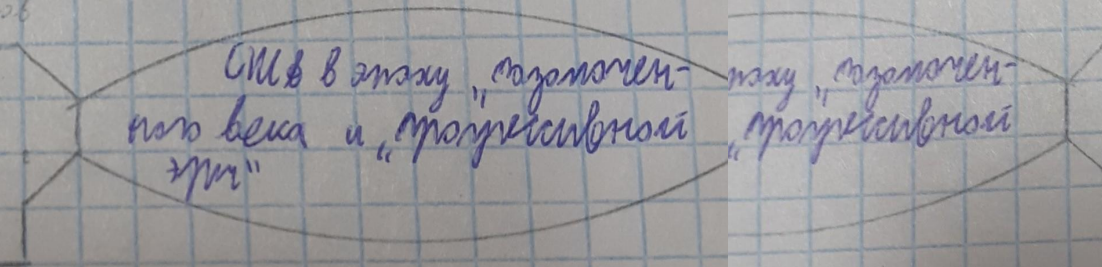 США в эпоху „позолочен-
ного века и „прогрессивной
эры“
поху „позолочен-
„прогрессивной